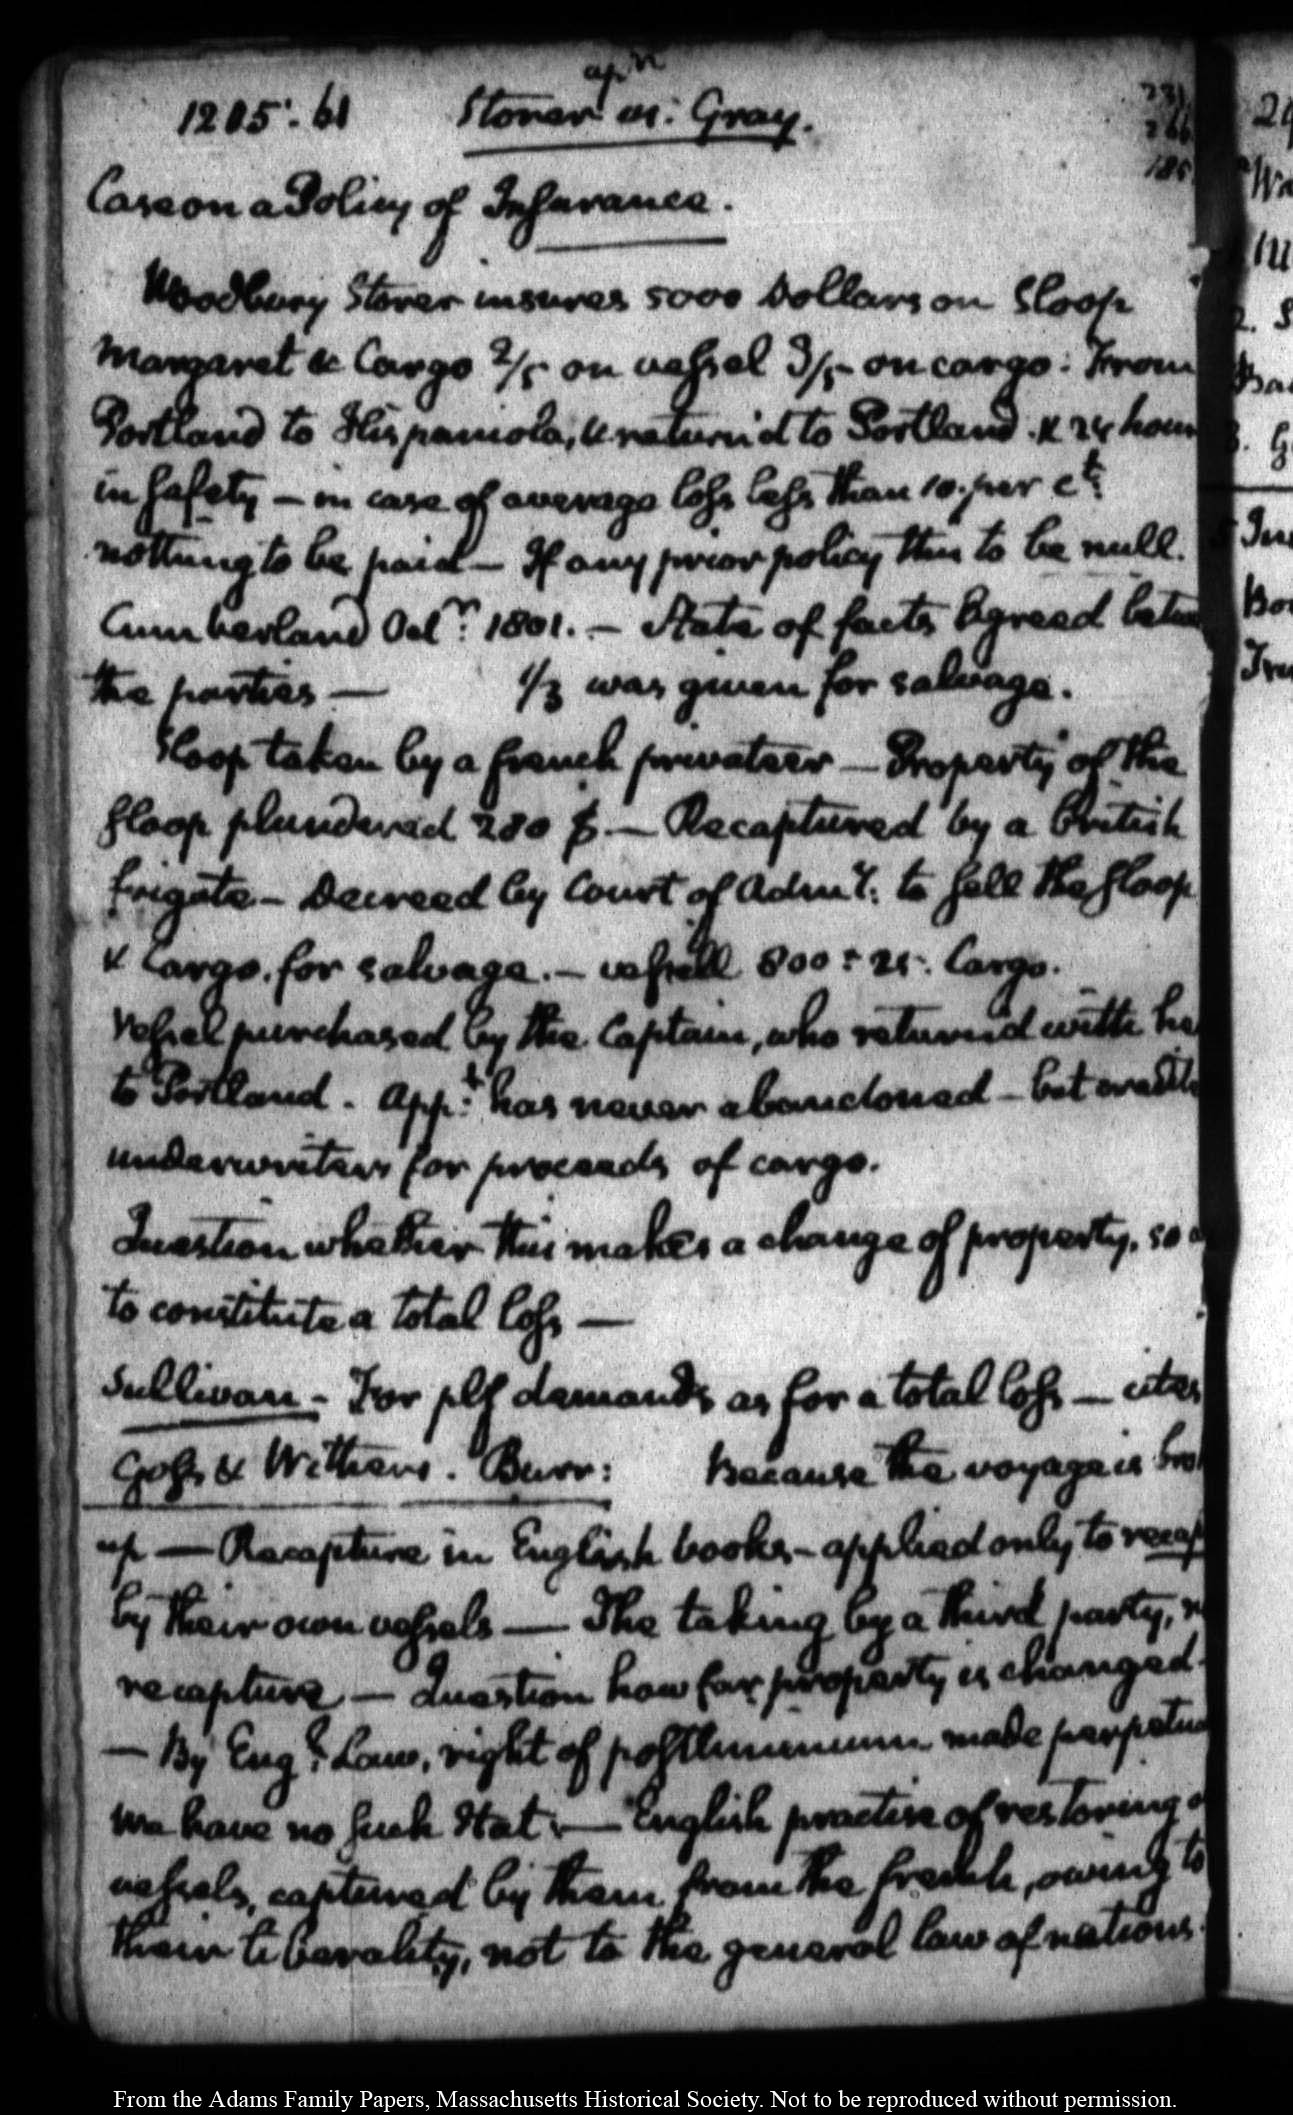 1205. 61 Storer ap.n vs. Gray.
231
266
185
Case on a Policy of Insurance.
Woodbury Storer insures 5000 Dollars on Sloop
Margaret & Cargo 2/5 on vessel 3/5 on cargo: From
Portland to Hispaniola, & return'd to Portland. & 24 hour
in safety – in case of average loss less than 10. per ct.
nothing to be paid – If any prior policy this to be null.
Cumberland 1801. – State of facts Agreed betw
the parties — 1/3 was given for salvage.
Sloop taken by a french privateer — Property of the
sloop plundered 280 $ — Recaptured by a British
frigate – Decreed by Court of Admy: to sell the sloop
& Cargo. for salvage. – vessell 800 : 25. Cargo.
Vessel purchased by the Captain, who return'd with he
to Portland. Appt: has never abandoned – but
underwriters for proceeds of cargo.
Question whether this makes a change of property, so a
to constitute a total loss —
Sullivan – For plf demands as for a total loss — cites
Goss & Withers. Burr: Because the voyage is bro
up — Recapture in English books – applied only to recap
by their own vessels — The taking by a third party, n
recapture — Question how far property is changed –
— By Eng: Law, right of postliminium made perpetua
we have no such Stat: — English practise of restoring o
vessels, captured by them from the french, owing to
their liberality, not to the general law of nations.
2.
3.
5
From the Adams Family Papers, Massachusetts Historical Society. Not to be reproduced without permission.